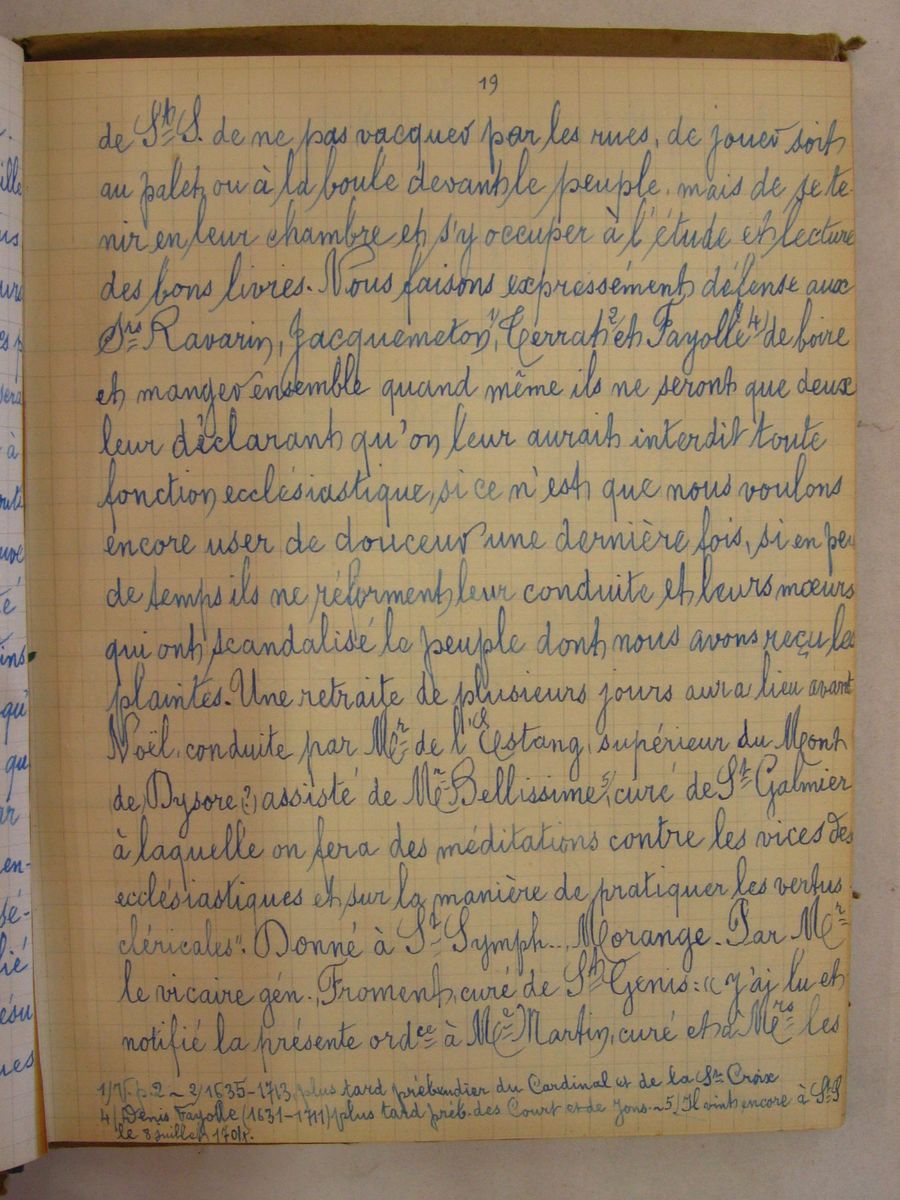 19
de St S. de ne pas vacquer par les rues, de jouer soit
au palet ou à la boule devant le peuple, mais de se te-
nir en leur chambre et s'y occuper à l'étude et lecture
des bons livres. Nous faisons expressément défense aux
Srs Ravarin, Jacquemeton 1), Terrat 2 et Fayolle 4) de boire
et manger ensemble quand même ils ne seront que deux
leur déclarant qu'on leur aurait interdit toute
fonction ecclésiastique, si ce n'est que nous voulons
encore user de douceur une dernière fois, si en peu
de temps ils ne réforment leur conduite et leurs mœurs
qui ont scandalisé le peuple dont nous avons reçu les
plaintes. Une retraite de plusieurs jours aura lieu avant
Noël, conduite par Mr de l'Estang, supérieur du Mont
de Dysore (?) assisté de Mr Bellissime 5), curé de St Galmier
à laquelle on fera des méditations contre les vices des
ecclésiastiques et sur la manière de pratiquer les vertus
cléricales". Donné à St Symph... Morange. Par Mr
le vicaire gén. Froment, curé de St Genis : « J'ai lu et
notifié la présente ordce à Mr Martin, curé et à Mrs les
1) V. p. 2 ~ 2) 1635-1713, plus tard prébendier du Cardinal et de la Ste Croix
4) Denis Fayolle (1631-1711) plus tard préb. des Court et de Jons ~ 5) Il vint encore à St S
le 8 juillet 1701.